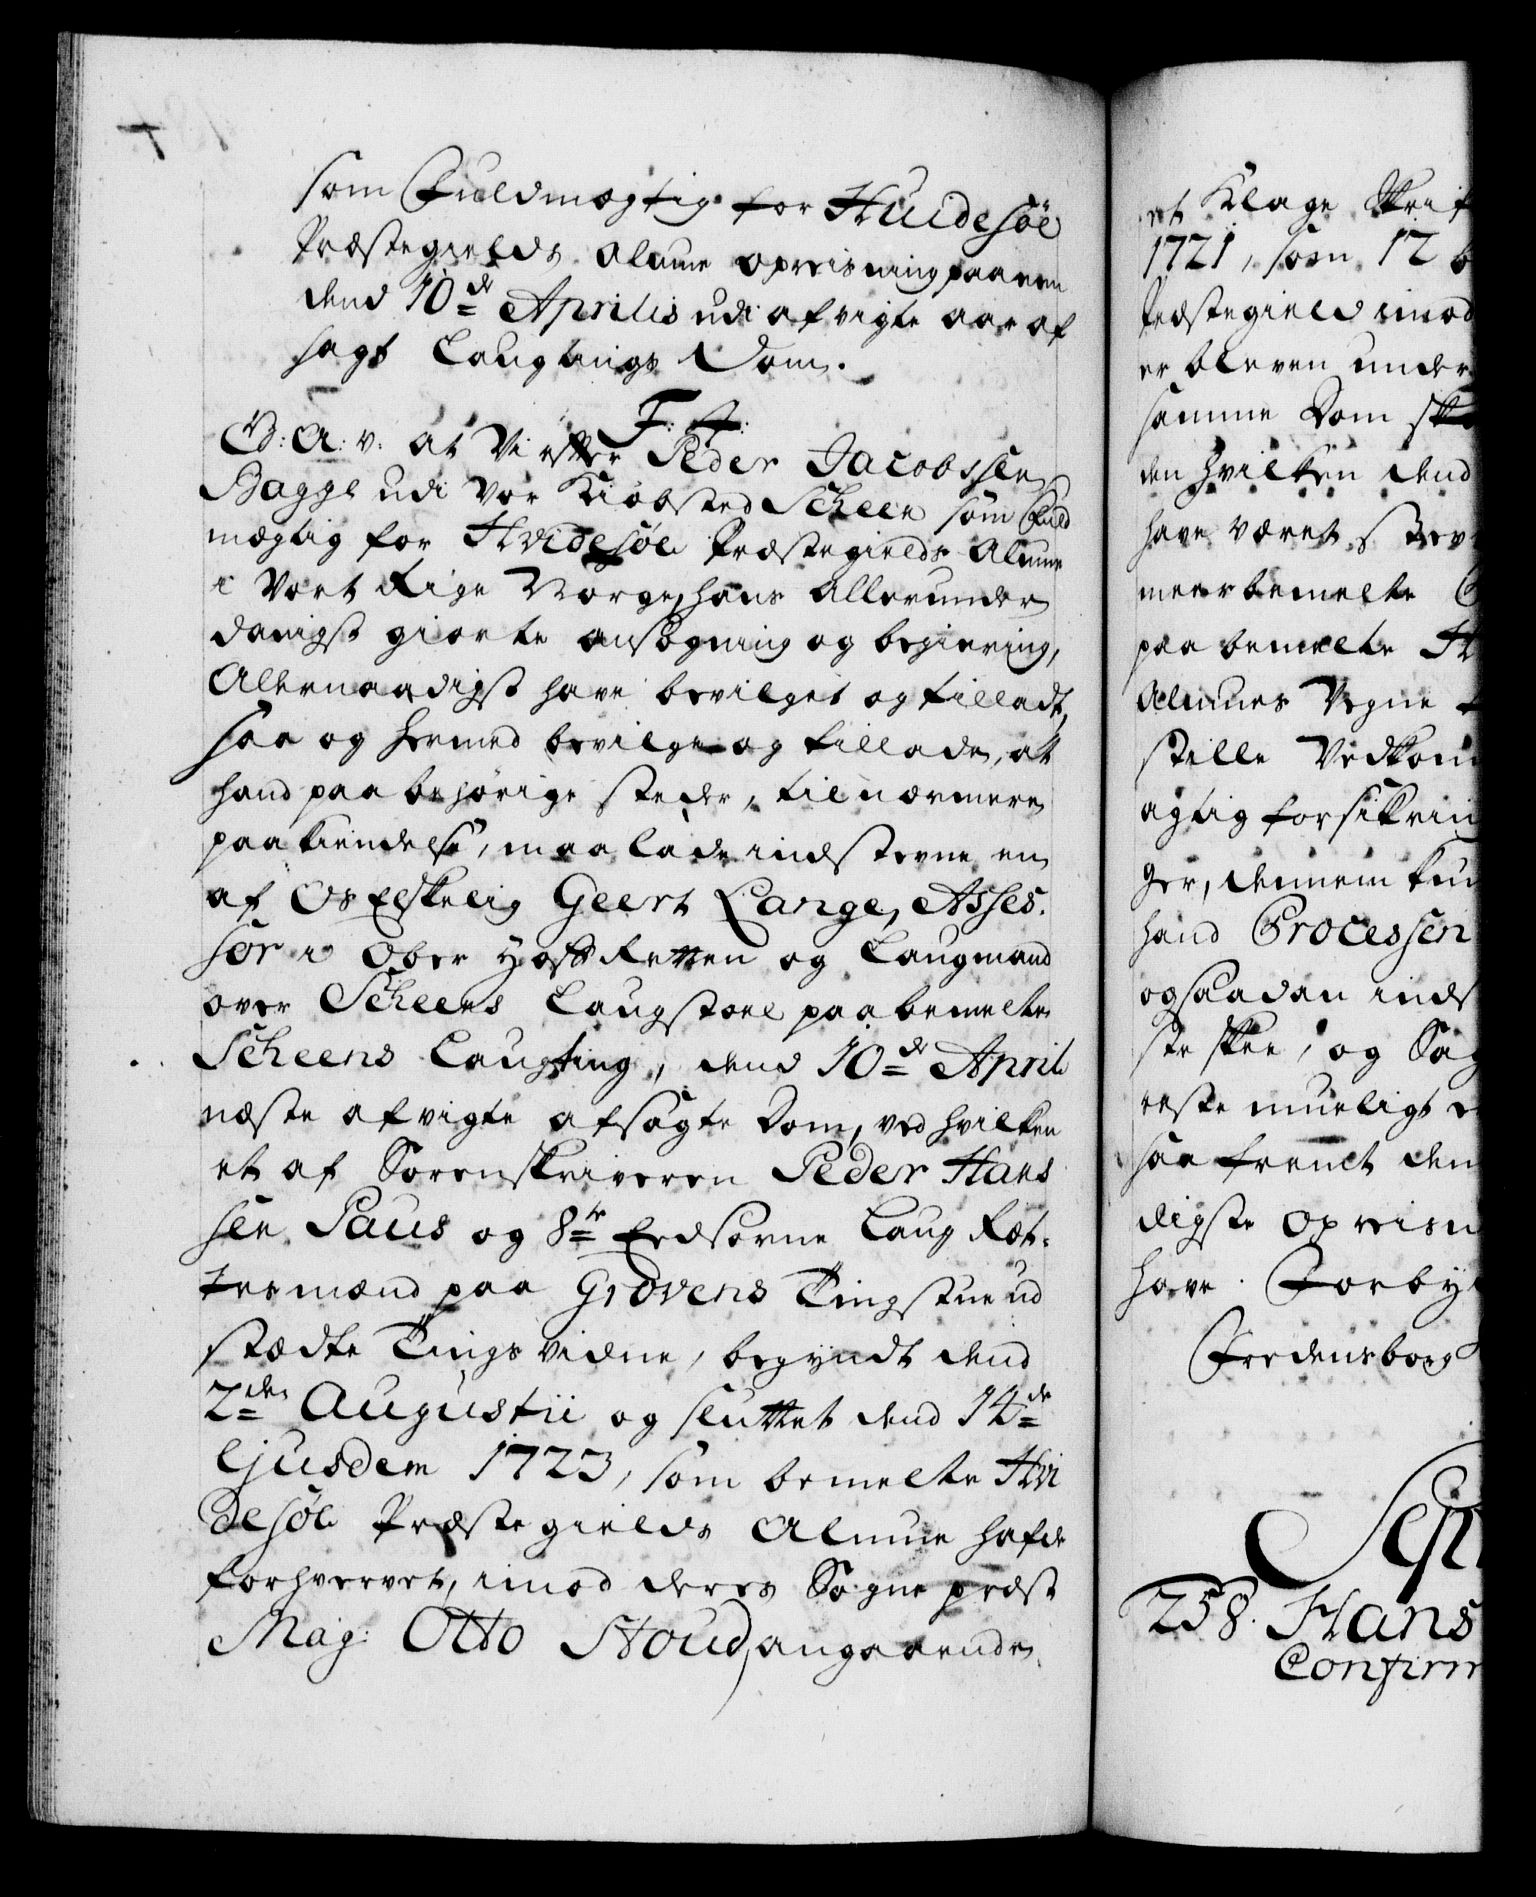 som Fuldmegtig for Huidesöe
Præstegields Almue opreisning paa en
dend 10de Aprilis udi afvigte aar af
sagt Laugtings Dom.
F: 4:
G: A: v: at Vi efter Peder Jacobssen
Bagge udi vor Kiøbsted Scheen som Fuld
megtig for Hvidesøe Præstegields Almue
i Vort Rige Norge, hans Allerunder
danigst giorte ansøgning og begiering,
Allernaadigst have bevilget og tilladt,
saa og hermed bevilge og tillade, at
hand paa behørige steder, til nærmere
paakiendelse, maa lade indstevne en
af Os Elskelig Geert Lange, Asses-
sor i Ober Hoff Retten og Laugmand
over Scheens Laugstoel paa bemelte
Scheens Laugting, dend 10de April
næste afvigte afsagte Dom, ved hvilken
et af Sorenskriveren Peder Hans
sen Paus og 8te Eedsorne Laug Ræt-
tesmænd paa Grovens Tingstue ud
stædte Tings vidne, begyndt dend
2den Augustii og sluttet dend 14de
Ejusdem 1723, som bemelte Hvi
desøe Præstegields Almue hafde
forhvervet, imod deres Sogne præst
Mag: Otto Stoud, angaaende
et Klage Skrif
1721, som 12
Præstegield imod
er bleven under
samme Dom
den hvilken dend
have været stev
meerbemelte
paa bemelte H
Almues Vegne
stille Vedkom
agtig forsikrin
ger, dennem kun
hand Processen
og saadan inds
ste skee, og Sag
eeste mueligt
saa fremt den
digste opreisn
have. Forby
Fredensborg
Sept
258. Hans
Confirm